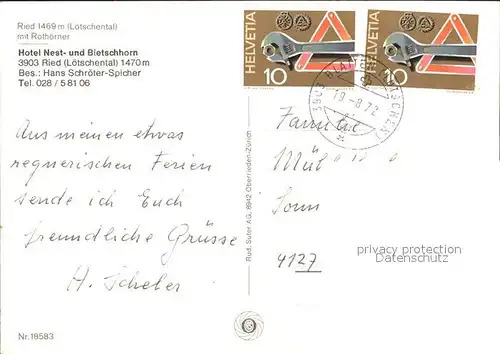 Ried 1469 m (Lötschental)
mit Rothörner
Hotel Nest- und Bietschhorn
3903 Ried (Lötschental) 1470 m
Bes.: Hans Schröter-Spicher
Tel. 028 / 5 81 06
Aus meinen etwas
regnerischen Ferien
sende ich Euch
freundliche Grüsse
H. Scheler
Nr. 18583
Rud. Suter AG, 8942 Oberrieden-Zürich
HELVETIA
10
HELVETIA
10
3903
19-8.72
Familie
Mül
Sonn
4127
privacy protection
Datenschutz